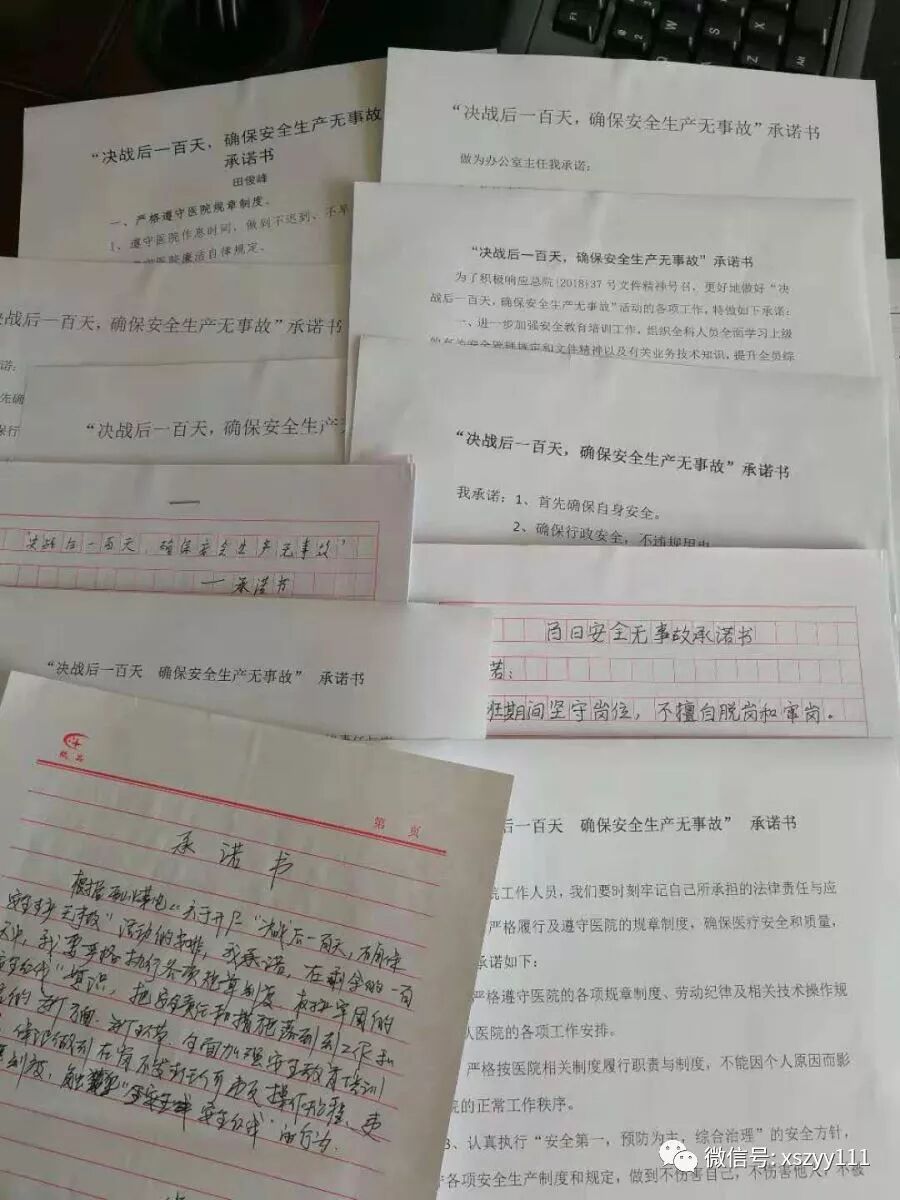 “决战后一百天，确保安全生产无事故
承诺书
田俊峰
一、严格遵守医院规章制度。
1、遵守医院作息时间，做到不迟到、不早
医院廉洁自律规定。
“决战后一百天，确保安全生产无事故”承诺书
做为办公室主任我承诺：
“决战后一百天，确保安全生产无事故”承诺书
为了积极响应总院{2018}37 号文件精神号召，更好地做好“决
战后一百天，确保安全生产无事故”活动的各项工作，特做如下承诺：
一、进一步加强安全教育培训工作，组织全科人员全面学习上级
的有关安全管理规定和文件精神以及有关业务技术知识，提升全员综
决战后一百天，确保安全生产无事故”承诺书
诺：
先确
保行
“决战后一百天，确保安全生产无
“决战后一百天，确保安全生产无事故”承诺书
我承诺：1、首先确保自身安全。
2、确保行政安全，不违规用电
“决战后一百天，确保安全生产无事故”
—承诺书
百日安全无事故承诺书
若：
班期间坚守岗位，不擅自脱岗和窜岗。
“决战后一百天 确保安全生产无事故” 承诺书
第 页
承诺书
安全生产无事故”活动的安排，我承诺，在剩余的一百
天中，我要严格执行各项规章制度，
意识，把安全责任和措施落到到工作
全面加强安全教育培训
安全红线”的行为.
后一百天 确保安全生产无事故” 承诺书
院工作人员，我们要时刻牢记自己所承担的法律责任与应
严格履行及遵守医院的规章制度，确保医疗安全和质量，
承诺如下：
严格遵守医院的各项规章制度、劳动纪律及相关技术操作规
从医院的各项工作安排。
严格按医院相关制度履行职责与制度，不能因个人原因而影
院的正常工作秩序。
3、认真执行“安全第一，预防为主，综合治理”的安全方针，
各项安全生产制度和规定，做到不伤害自己，不伤害他人，不被
微信号: xszyy111